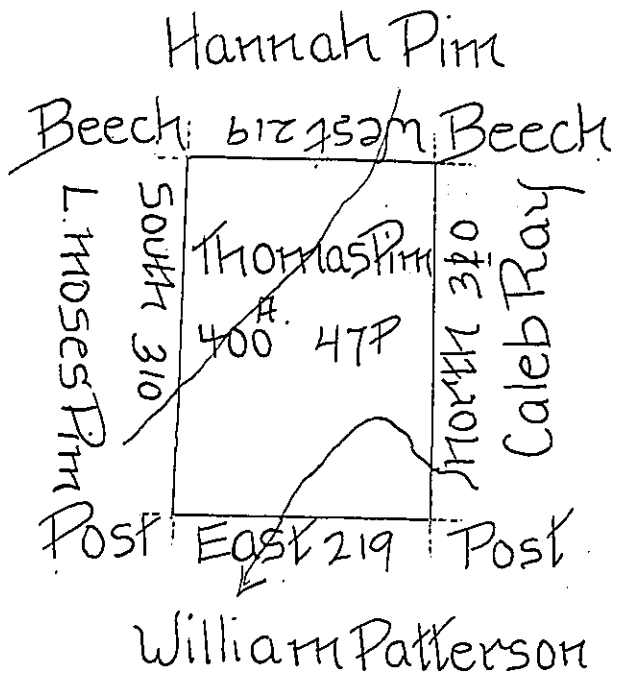 Hannah Pim
Beech
West 219
Beech
L. Moses Pim
South 310
Thomas Pim
400 A. 47P
North 310
Caleb Ray
Post
East 219
Post
William Patterson